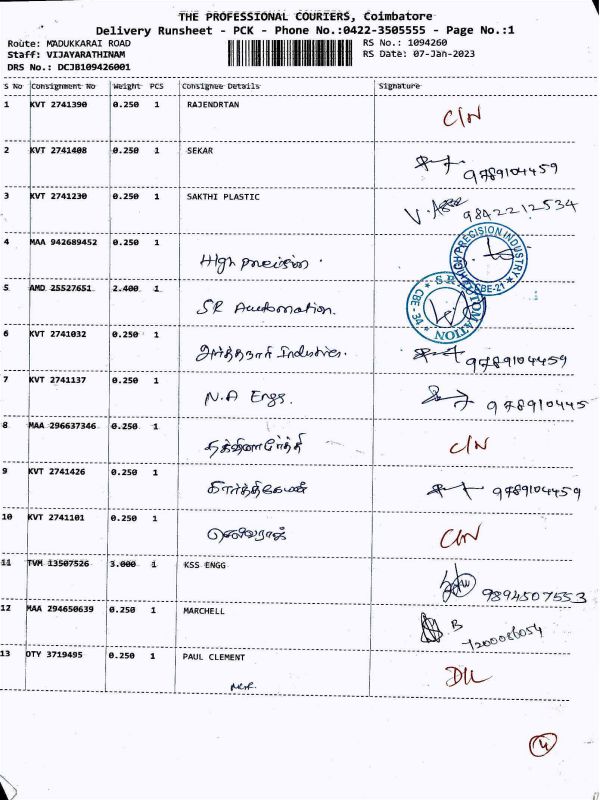 THE PROFESSIONAL COURIERS, Coimbatore
Delivery Runsheet - PCK - Phone No.:0422-3505555 - Page No.:1
Route: MADUKKARAI ROAD RS No.: 1094260
Staff: VIJAYARATHINAM RS Date: 07-Jan-2023
DRS No.: DCJB109426001
S No Consignment No Weight PCS Consignee Details Signature
1 KVT 2741390 0.250 1 RAJENDRTAN C/N
2 KVT 2741408 0.250 1 SEKAR 9789104459
3 KVT 2741230 0.250 1 SAKTHI PLASTIC 9842212534
4 MAA 942689452 0.250 1 High precision. HIGH PRECISION INDUSTRY CBE-21
5 AMD 25527651 2.400 1 SR Automation. SR AUTOMATION CBE - 34
6 KVT 2741032 0.250 1 Industries. 9789104459
7 KVT 2741137 0.250 1 N.A Engg. 978910445
8 MAA 296637346 0.250 1 C/N
9 KVT 2741426 0.250 1 கார்த்திகேயன் 9789104459
10 KVT 2741101 0.250 1 செல்வராஜ் C/N
11 TVM 13507526 3.000 1 KSS ENGG 9894507553
12 MAA 294650639 0.250 1 MARCHELL B
7200086054
13 OTY 3719495 0.250 1 PAUL CLEMENT DLL
4